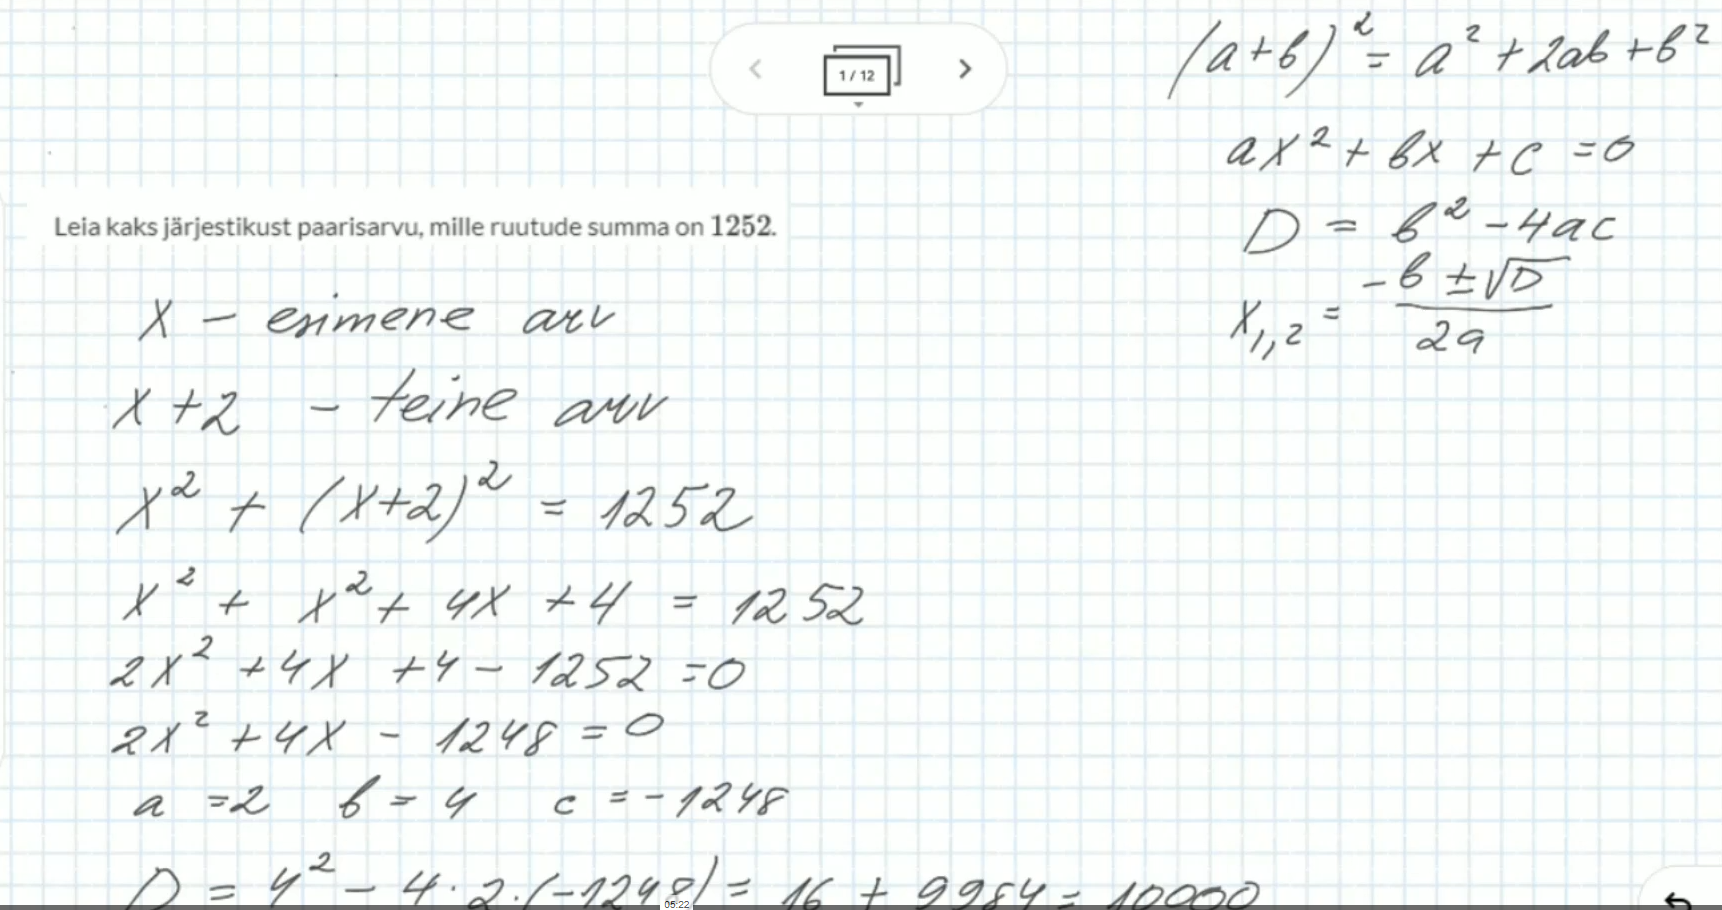 (a+b)² = a² + 2ab + b²
1 / 12
ax² + bx + c = 0
Leia kaks järjestikust paarisarvu, mille ruutude summa on 1252.
D = b² - 4ac
x₁,₂ = (-b ± √D) / 2a
x - esimene arv
x + 2 - teine arv
x² + (x+2)² = 1252
x² + x² + 4x + 4 = 1252
2x² + 4x + 4 - 1252 = 0
2x² + 4x - 1248 = 0
a = 2 b = 4 c = -1248
D = 4² - 4 · 2 · (-1248) = 16 + 9984 = 10000
05:22